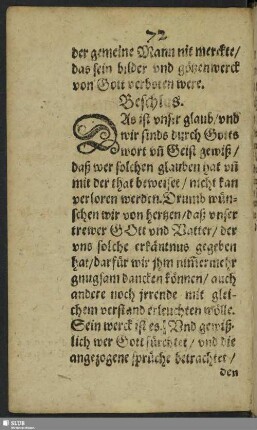 72
der gemeine Mann nit merckte/
das sein bilder vnd götzenwerck
von Gott verboten were.
Beschlus.
DAs ist vnser glaub/vnd
wir sinds durch Gotts
wort vñ Geist gewiß/
daß wer solchen glauben hat vñ
mit der that beweiset/nicht kan
verloren werden. Drumb wün-
schen wir von hertzen/daß vnser
trewer GOtt vnd Vatter/der
vns solche erkäntnus gegeben
hat/darfür wir jhm nim̃ermehr
gnugsam dancken können/auch
andere noch jrrende mit glei-
chem verstand erleuchten wölle.
Sein werck ist es. Vnd gewiß-
lich wer Gott fürchtet/vnd die
angezogene sprüche betrachtet/
den
SLUB